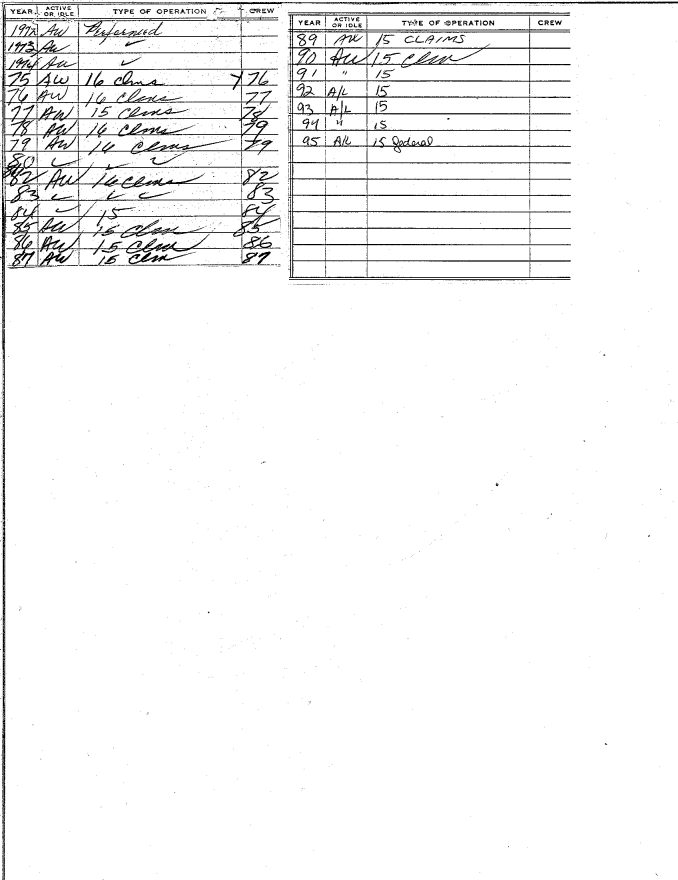 YEAR ACTIVE OR IDLE TYPE OF OPERATION CREW
1972 AW Performed
1973 AW ✓
1974 AW ✓
75 AW 16 clms 76
76 AW 16 clms 77
77 AW 15 clms 78
78 AW 16 clms 79
79 AW 16 clms 79
80 ✓ ✓ ✓
82 AW 16 clms 82
83 ✓ ✓ ✓ 83
84 ✓ 15 84
85 AW 15 clm 85
86 AW 15 clm 86
87 AW 15 clm 87
YEAR ACTIVE OR IDLE TYPE OF OPERATION CREW
89 AW 15 CLAIMS
90 AW 15 clm
91 " 15
92 A/L 15
93 A/L 15
94 " 15
95 A/L 15 federal